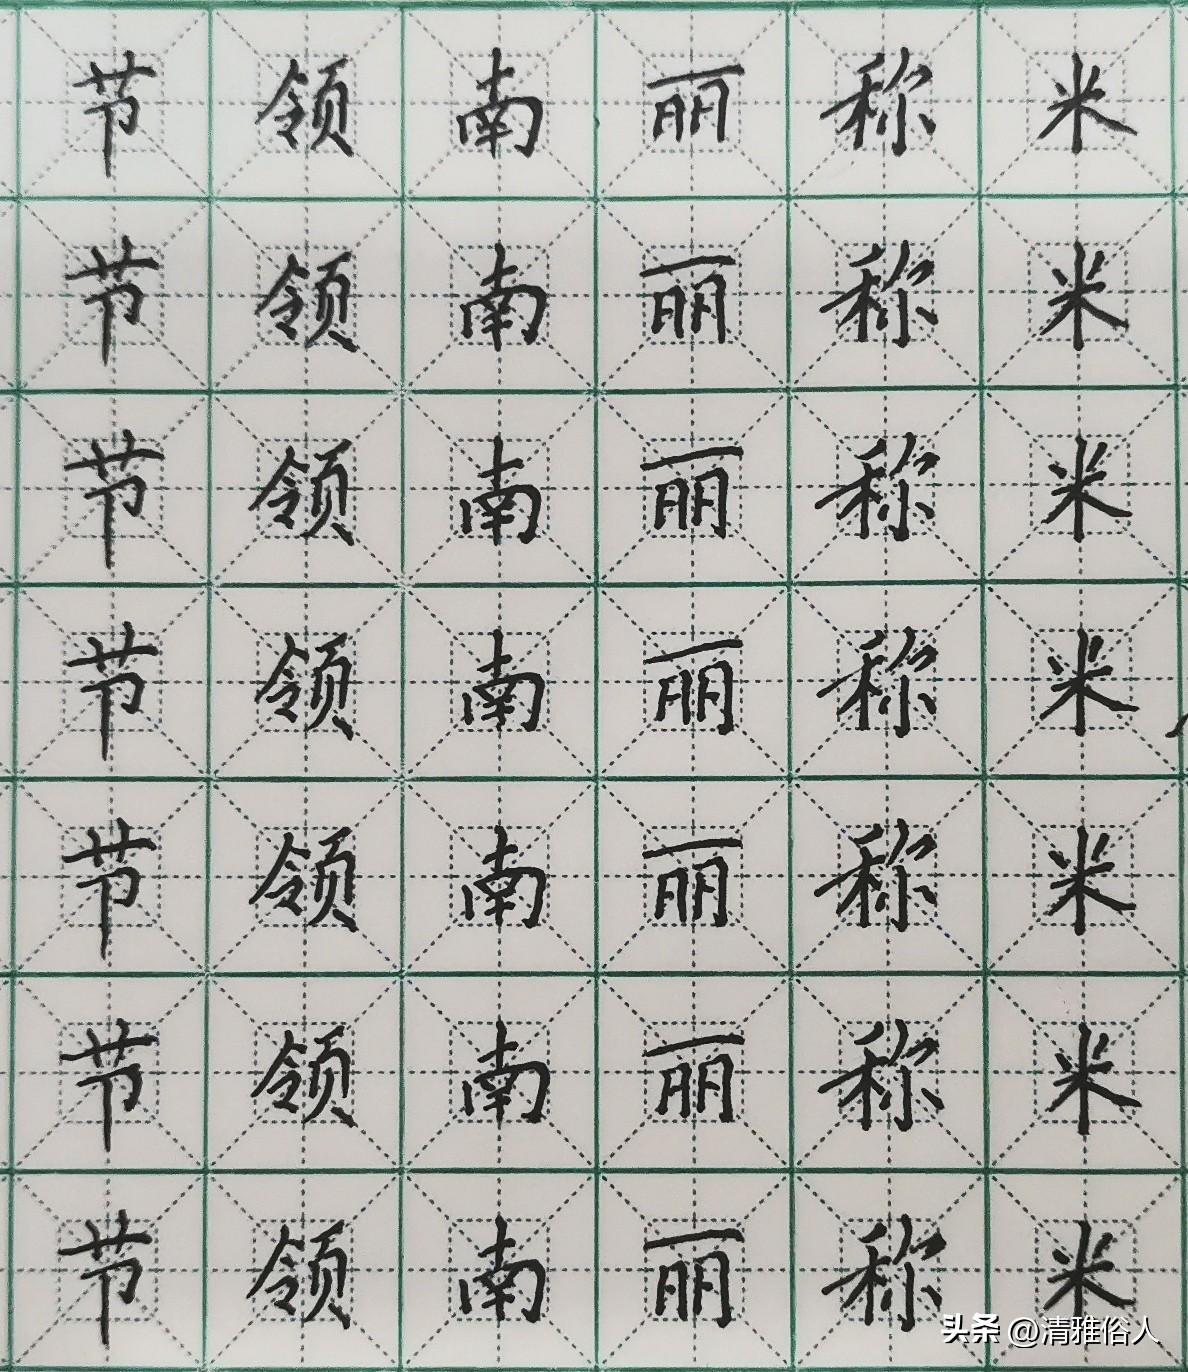 节领南丽称米
节领南丽称米
节领南丽称米
节领南丽称米
节领南丽称米
节领南丽称米
节领南丽称米
头条 @清雅俗人